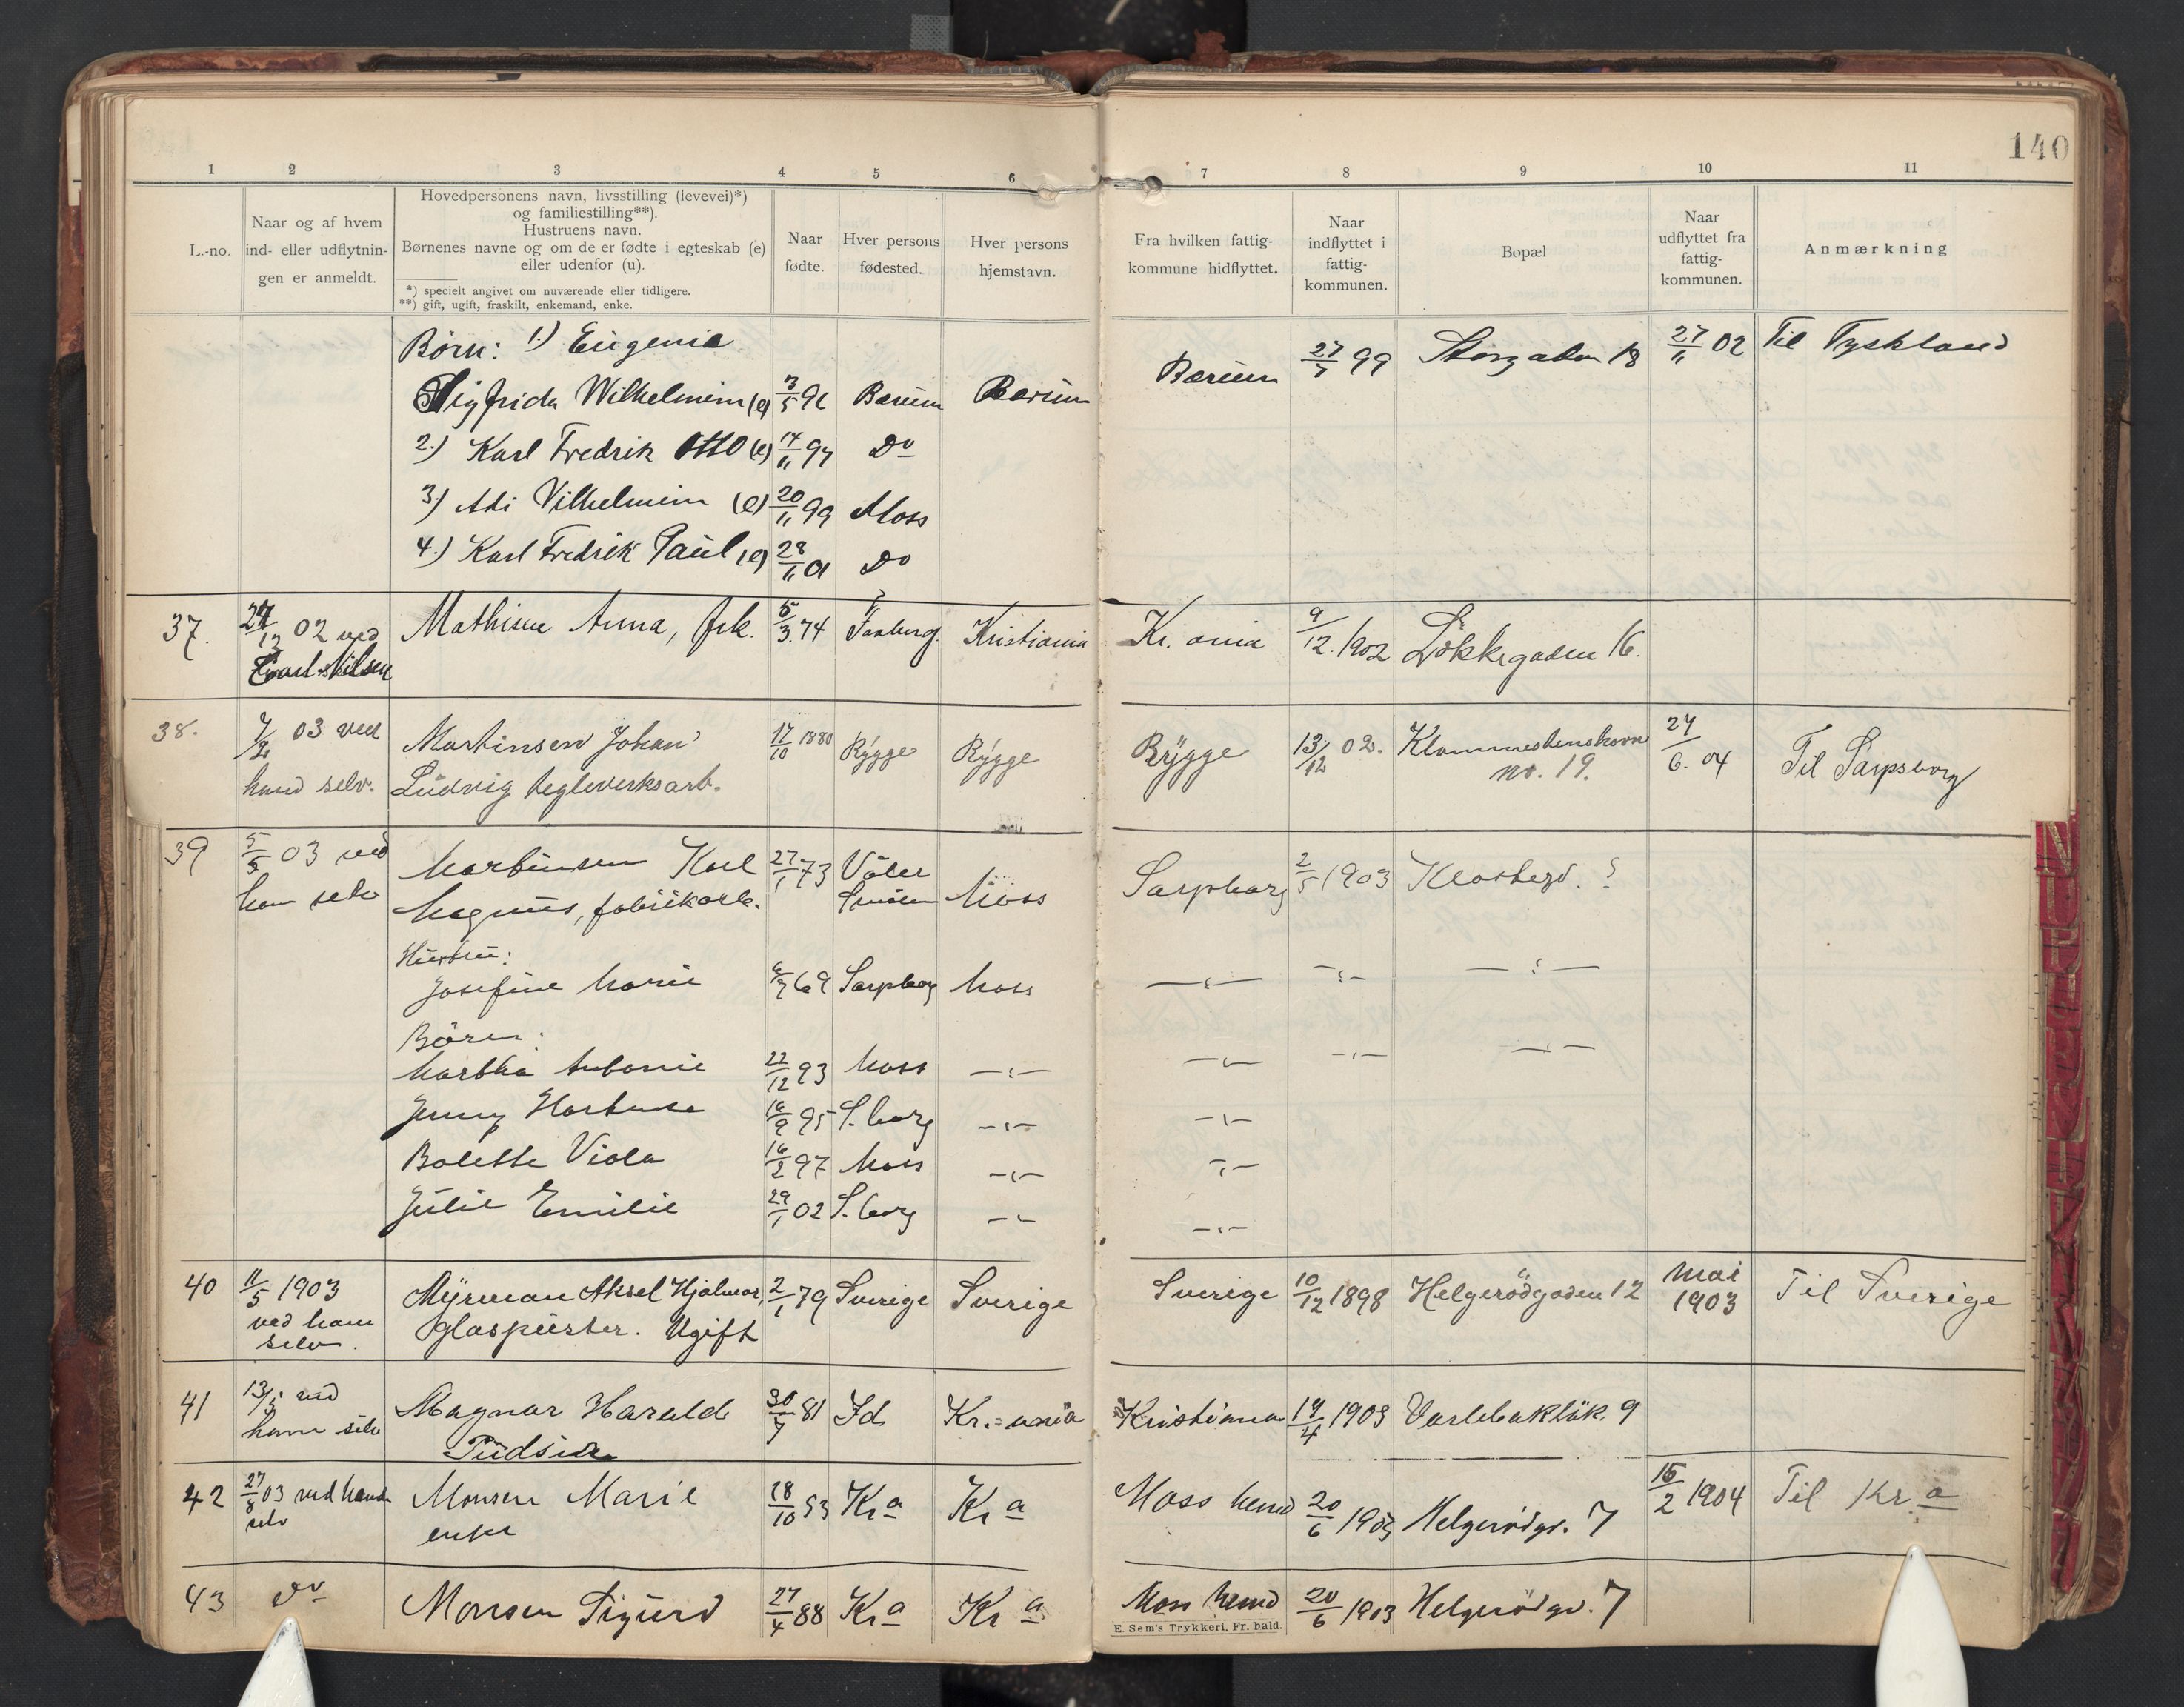 140
1 2 3 4 5 6 7 8 9 10 11
L.-no.
Naar og af hvem
ind- eller udflytnin-
gen er anmeldt.
Hovedpersonens navn, livsstilling (levevei)*)
og familiestilling**).
Hustruens navn.
Børnenes navne og om de er fødte i egteskab (e)
eller udenfor (u).
*) specielt angivet om nuværende eller tidligere.
**) gift, ugift, fraskilt, enkemand, enke.
Naar
fødte.
Hver persons
fødested.
Hver persons
hjemstavn.
Fra hvilken fattig-
kommune hidflyttet.
Naar
indflyttet i
fattig-
kommunen.
Bopæl
Naar
udflyttet fra
fattig-
kommunen.
Anmærkning
Børn: 1.) Eugenia
Sigfrida Wilhelmine (e) Bærum Bærum Bærum 27/7 99 Storgaden 18 27/11 02 Til Tyskland
2.) Karl Fredrik Otto (e) 14/11 97 Do
3.) Adi Vilhelmine (e) 20/11 99 Moss
4.) Karl Fredrik Paul (e) 28/11 01 Do
37. 02 ved Mathisen Anna, frk. 5/3. 74 Faaberg Kristiania Kr. ania 9/12. 1902 Løkkegaden 16.
Nilsen
38. 03 ved Martinsen Johan 17/10 1880 Rygge Rygge Rygge 13/12 02. 24/6. 04 Til Sarpsborg
ham selv. Ludvig teglverksarb. no. 19.
39 5/5 03 ved Martinsen Karl 27/1 73 Våler Sarpsborg 2/5 1903
ham selv Magnus, fabrikarb. Smålen Moss
Hustru:
Josefine Marie 69 Sarpsborg Moss
Børn:
Martha Antonie 22/12 93 Moss
Jenny 16/9 95 S.borg
Bolette Viola 16/2 97 Moss
Julie Emilie 29/1 02 S.borg
40 11/5 1903 Myrman Aksel Hjalmar, 2/1 79 Sverige Sverige Sverige 10/12 1898 Helgerødgaden 12 Mai 1903 Til Sverige
ved ham glaspuster. Ugift
selv.
41 13/5 ved Magnar Harald 30/7 81 Id Kr.=ania Kristiania 14/4 1903 9
ham selv
42 27/8 03 ved hende Monsen Marie 18/10 53 Kra Kra Moss 20/6 1903 Helgerødgd. 7 15/2 1904 Til Kra
selv enke
43 Do Monsen Sigurd 27/4 88 Kra Kra Moss 20/6 1903 Helgerødgd. 7
E. Sem's Trykkeri, Fr. hald.